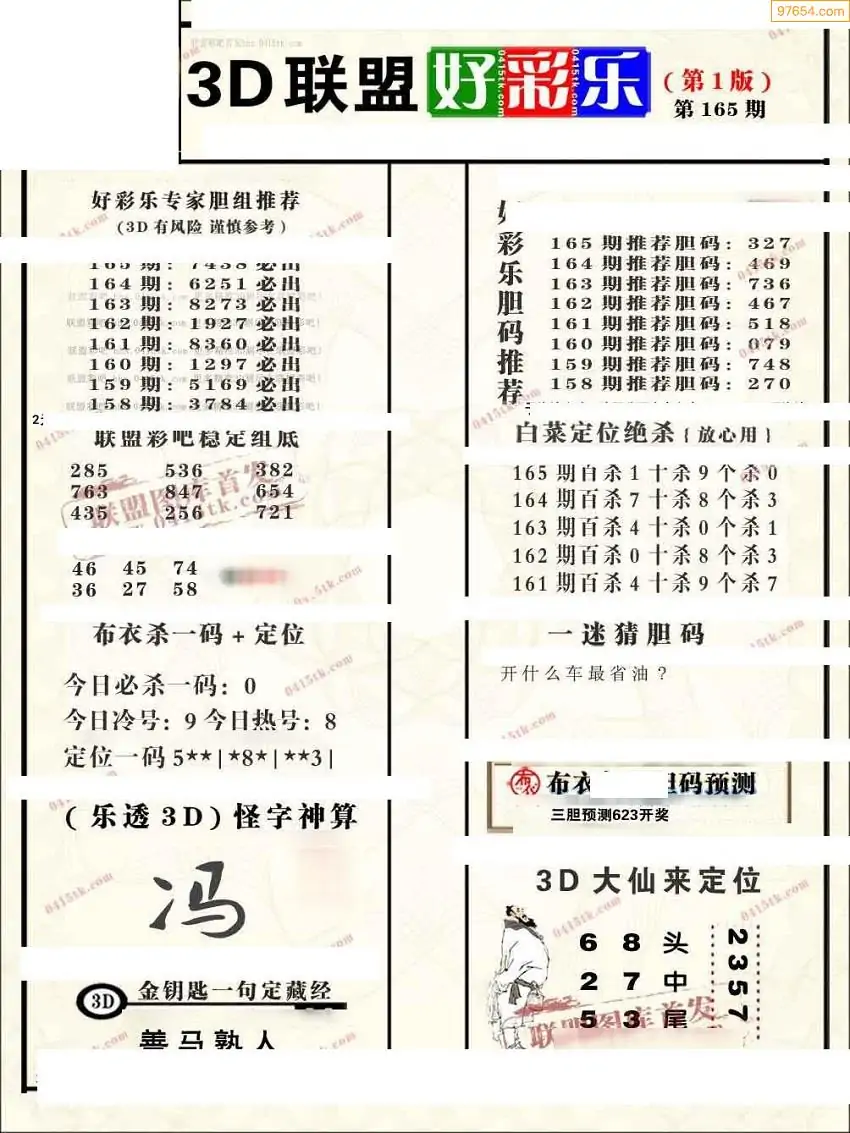 97654.com
3D联盟好彩乐
(第1版)
第165期
好彩乐专家胆组推荐
(3D有风险 谨慎参考)
165期:7438必出
164期:6251必出
163期:8273必出
162期:1927必出
161期:8360必出
160期:1297必出
159期:5169必出
158期:3784必出
联盟彩吧稳定组底
285 536 382
763 847 654
435 256 721
46 45 74
36 27 58
布衣杀一码+定位
今日必杀一码:0
今日冷号:9今日热号:8
定位一码5**|*8*|**3|
(乐透3D)怪字神算
冯
3D 金钥匙一句定藏经
善马熟人
好彩乐胆码推荐
165期推荐胆码:327
164期推荐胆码:469
163期推荐胆码:736
162期推荐胆码:467
161期推荐胆码:518
160期推荐胆码:079
159期推荐胆码:748
158期推荐胆码:270
白菜定位绝杀{放心用}
165期百杀1十杀9个杀0
164期百杀7十杀8个杀3
163期百杀4十杀0个杀1
162期百杀0十杀8个杀3
161期百杀4十杀9个杀7
一迷猜胆码
开什么车最省油?
布衣 胆码预测
三胆预测623开奖
3D大仙来定位
6 8 头
2 7 中
5 3 尾
2357
联盟图库首发
0415tk.com